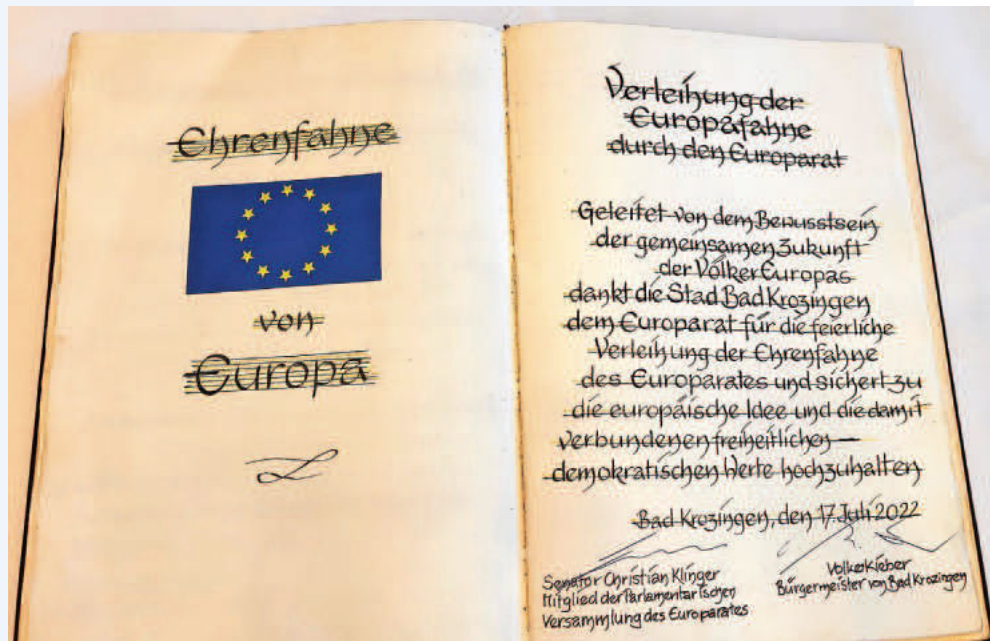 Ehrenfahne
von
Europa
Verleihung der
Europafahne
durch den Europarat
Geleitet von dem Bewusstsein
der gemeinsamen Zukunft
der Völker Europas
dankt die Stad Bad Krozingen
dem Europarat für die feierliche
Verleihung der Ehrenfahne
des Europarates und sichert zu
die europäische Idee und die damit
verbundenen freiheitlichen –
demokratischen Werte hochzuhalten
Bad Krozingen, den 17. Juli 2022
Senator Christian Klinger
Mitglied der Parlamentarischen
Versammlung des Europarates
Volker Kieber
Bürgermeister von Bad Krozingen